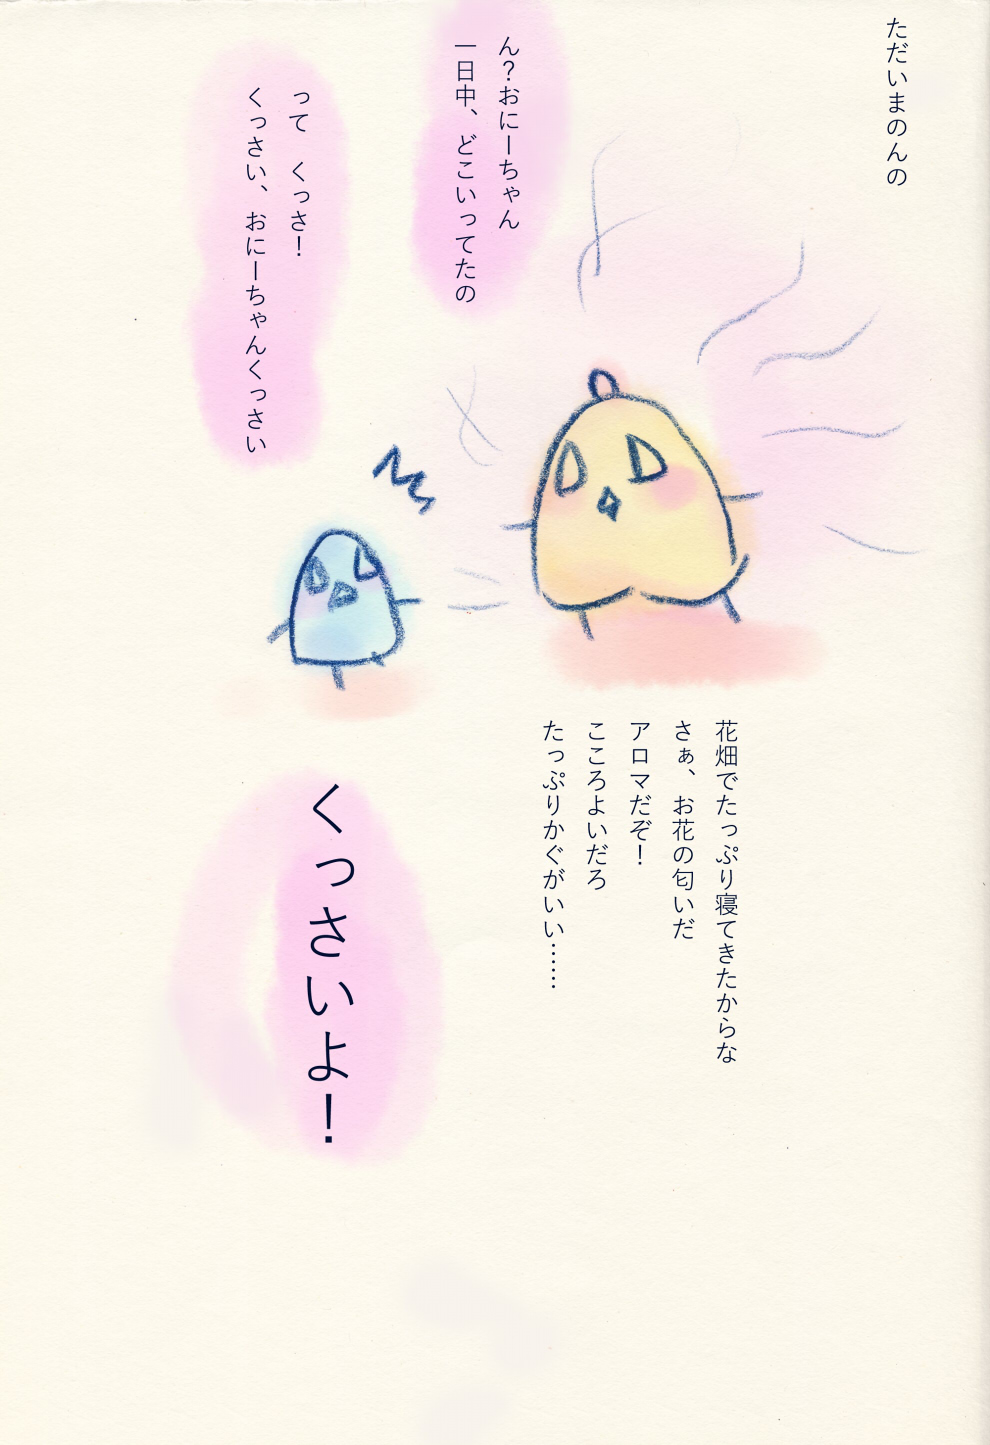 ただいまのんの
ん？おにーちゃん
一日中、どこいってたの
って　くっさ！
くっさい、おにーちゃんくっさい
花畑でたっぷり寝てきたからな
さぁ、お花の匂いだ
アロマだぞ！
こころよいだろ
たっぷりかぐがいい……
くっさいよ！